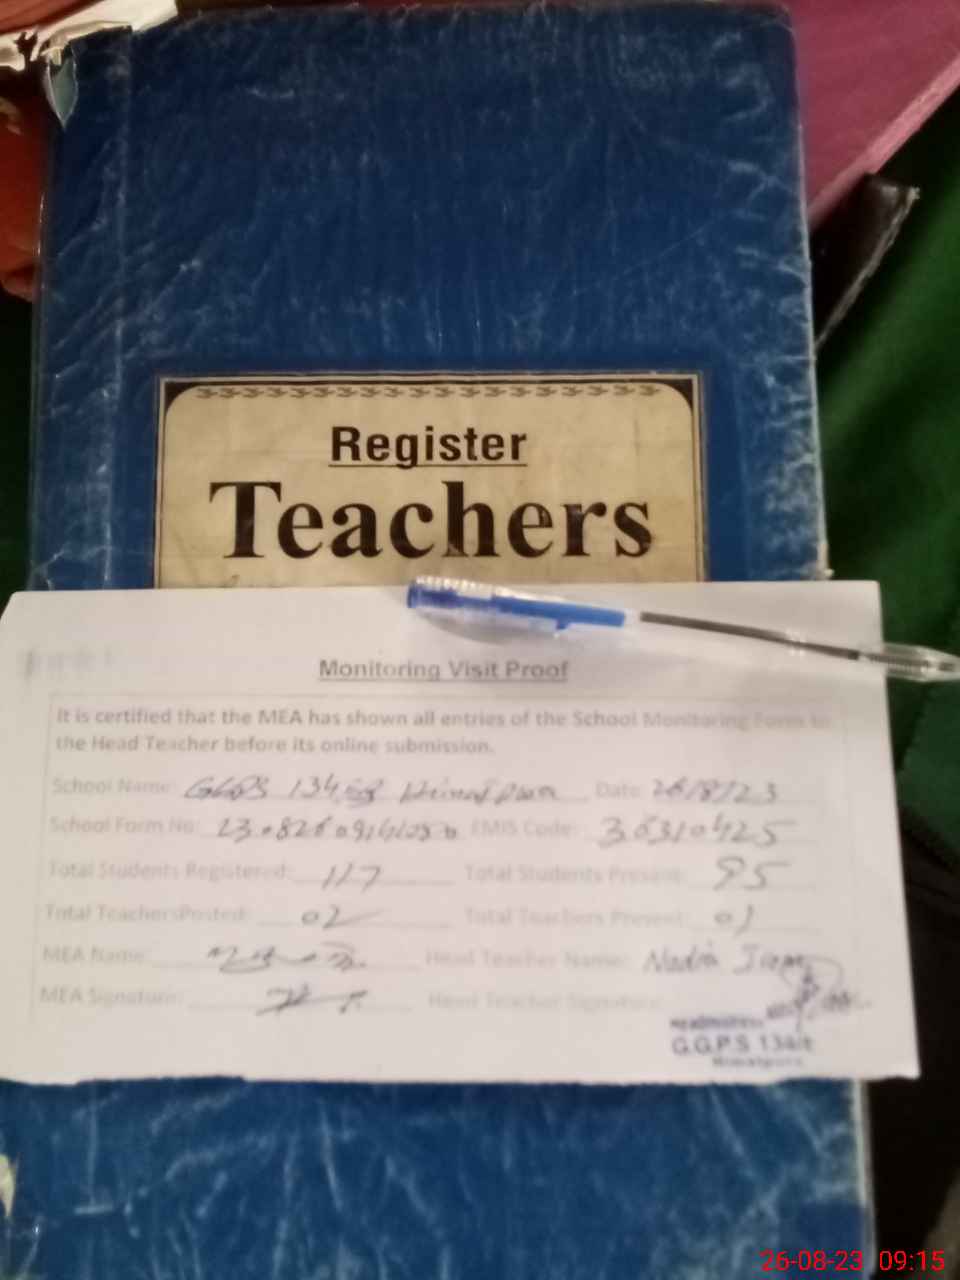 Register
Teachers
Monitoring Visit Proof
It is certified that the MEA has shown all entries of the School Monitoring Form to
the Head Teacher before its online submission.
School Name: GGPS Date 26/8/23
School Form No: EMIS Code: 36310425
Total Students Registered: 117 Total Students Present: 95
Total TeachersPosted: 02 Total Teachers Present: 01
MEA Name: Head Teacher Name: Nadia
MEA Signature: Head Teacher Signature:
Headmistress
G.G.P.S
26-08-23 09:15